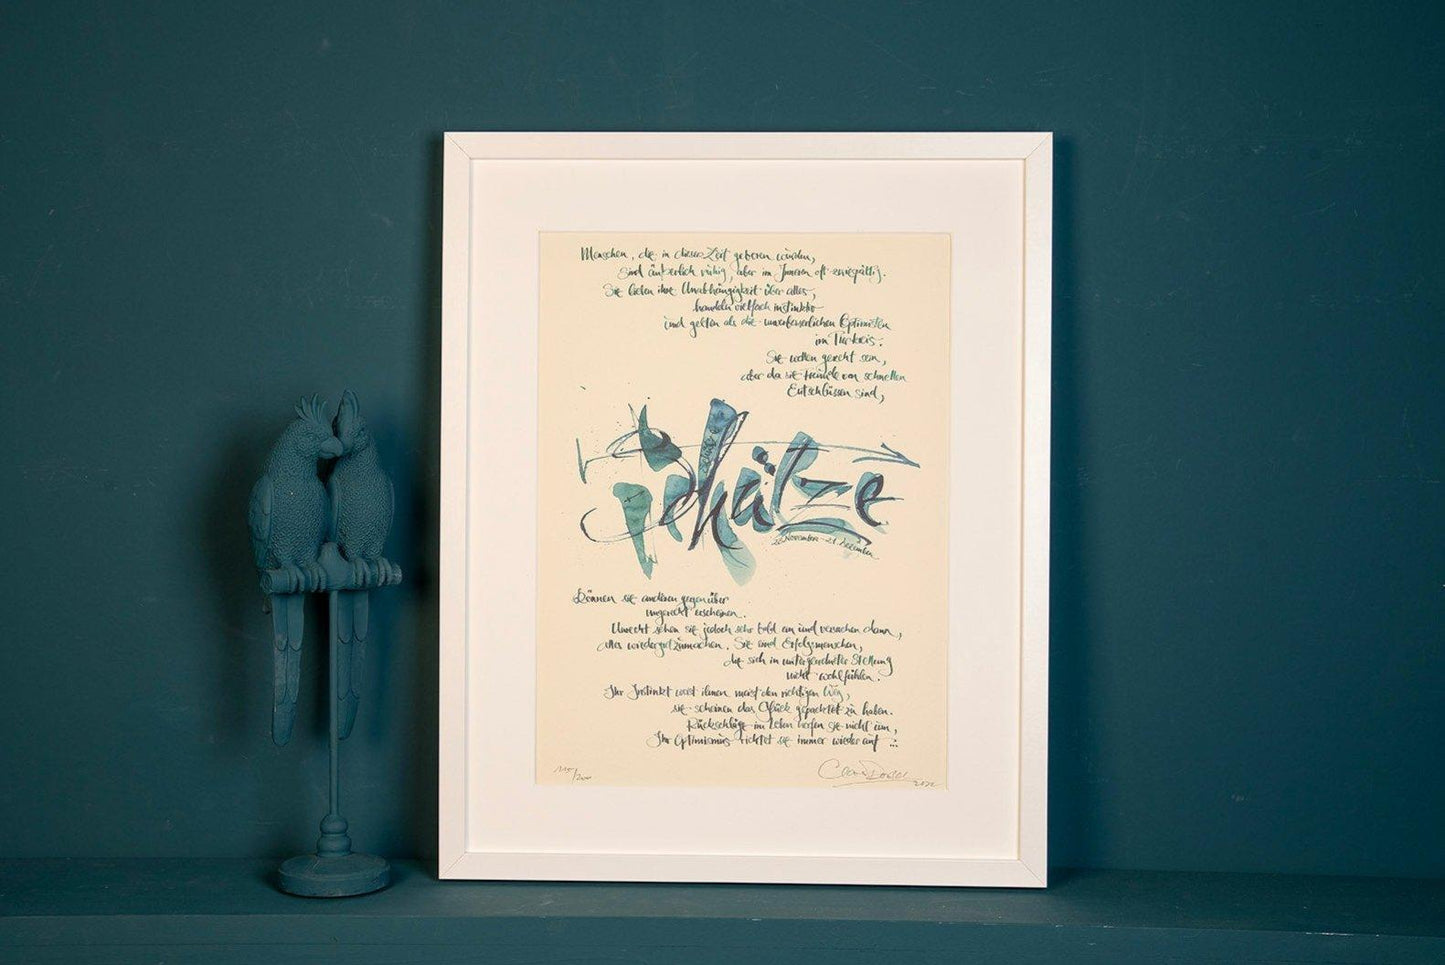 Menschen, die in dieser Zeit geboren wurden,
sind äußerlich ruhig, aber im Inneren oft zwiespältig.
Sie lieben ihre Unabhängigkeit über alles,
handeln vielfach instinktiv
und gelten als die unverbesserlichen Optimisten
im Tierkreis.
Sie wollen gerecht sein,
aber da sie Freunde von schnellen
Entschlüssen sind,
Schütze
23. November - 21. Dezember
können sie anderen gegenüber
ungerecht erscheinen.
Unrecht sehen sie jedoch sehr bald ein und versuchen dann,
alles wiedergutzumachen. Sie sind Erfolgsmenschen,
die sich in untergeordneter Stellung
nicht wohlfühlen.
Ihr Instinkt weist ihnen meist den richtigen Weg,
sie scheinen das Glück gepachtet zu haben.
Rückschläge im Leben werfen sie nicht um,
Ihr Optimismus richtet sie immer wieder auf ...
/200